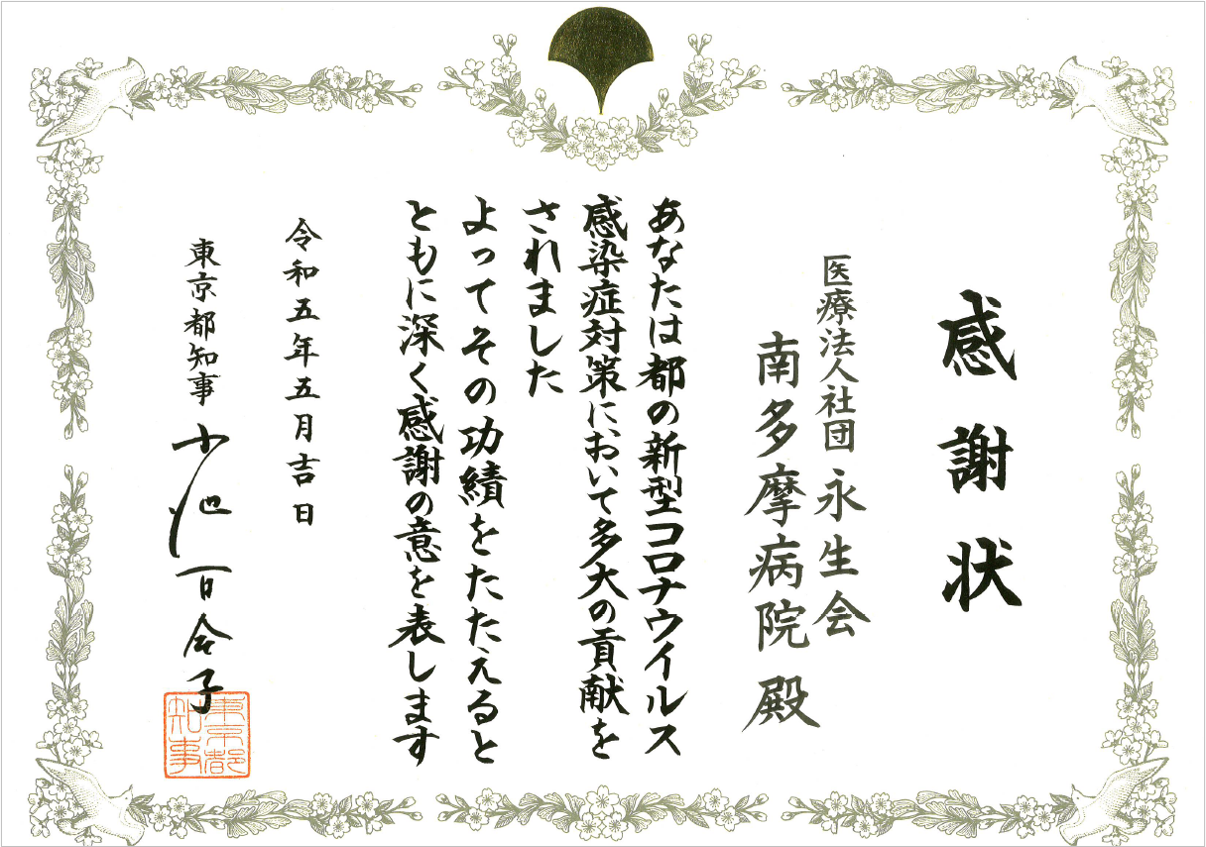 感謝状
医療法人社団 永生会
南多摩病院 殿
あなたは都の新型コロナウイルス
感染症対策において多大の貢献を
されました
よってその功績をたたえると
ともに深く感謝の意を表します
令和五年五月吉日
東京都知事 小池百合子
東京都
知事